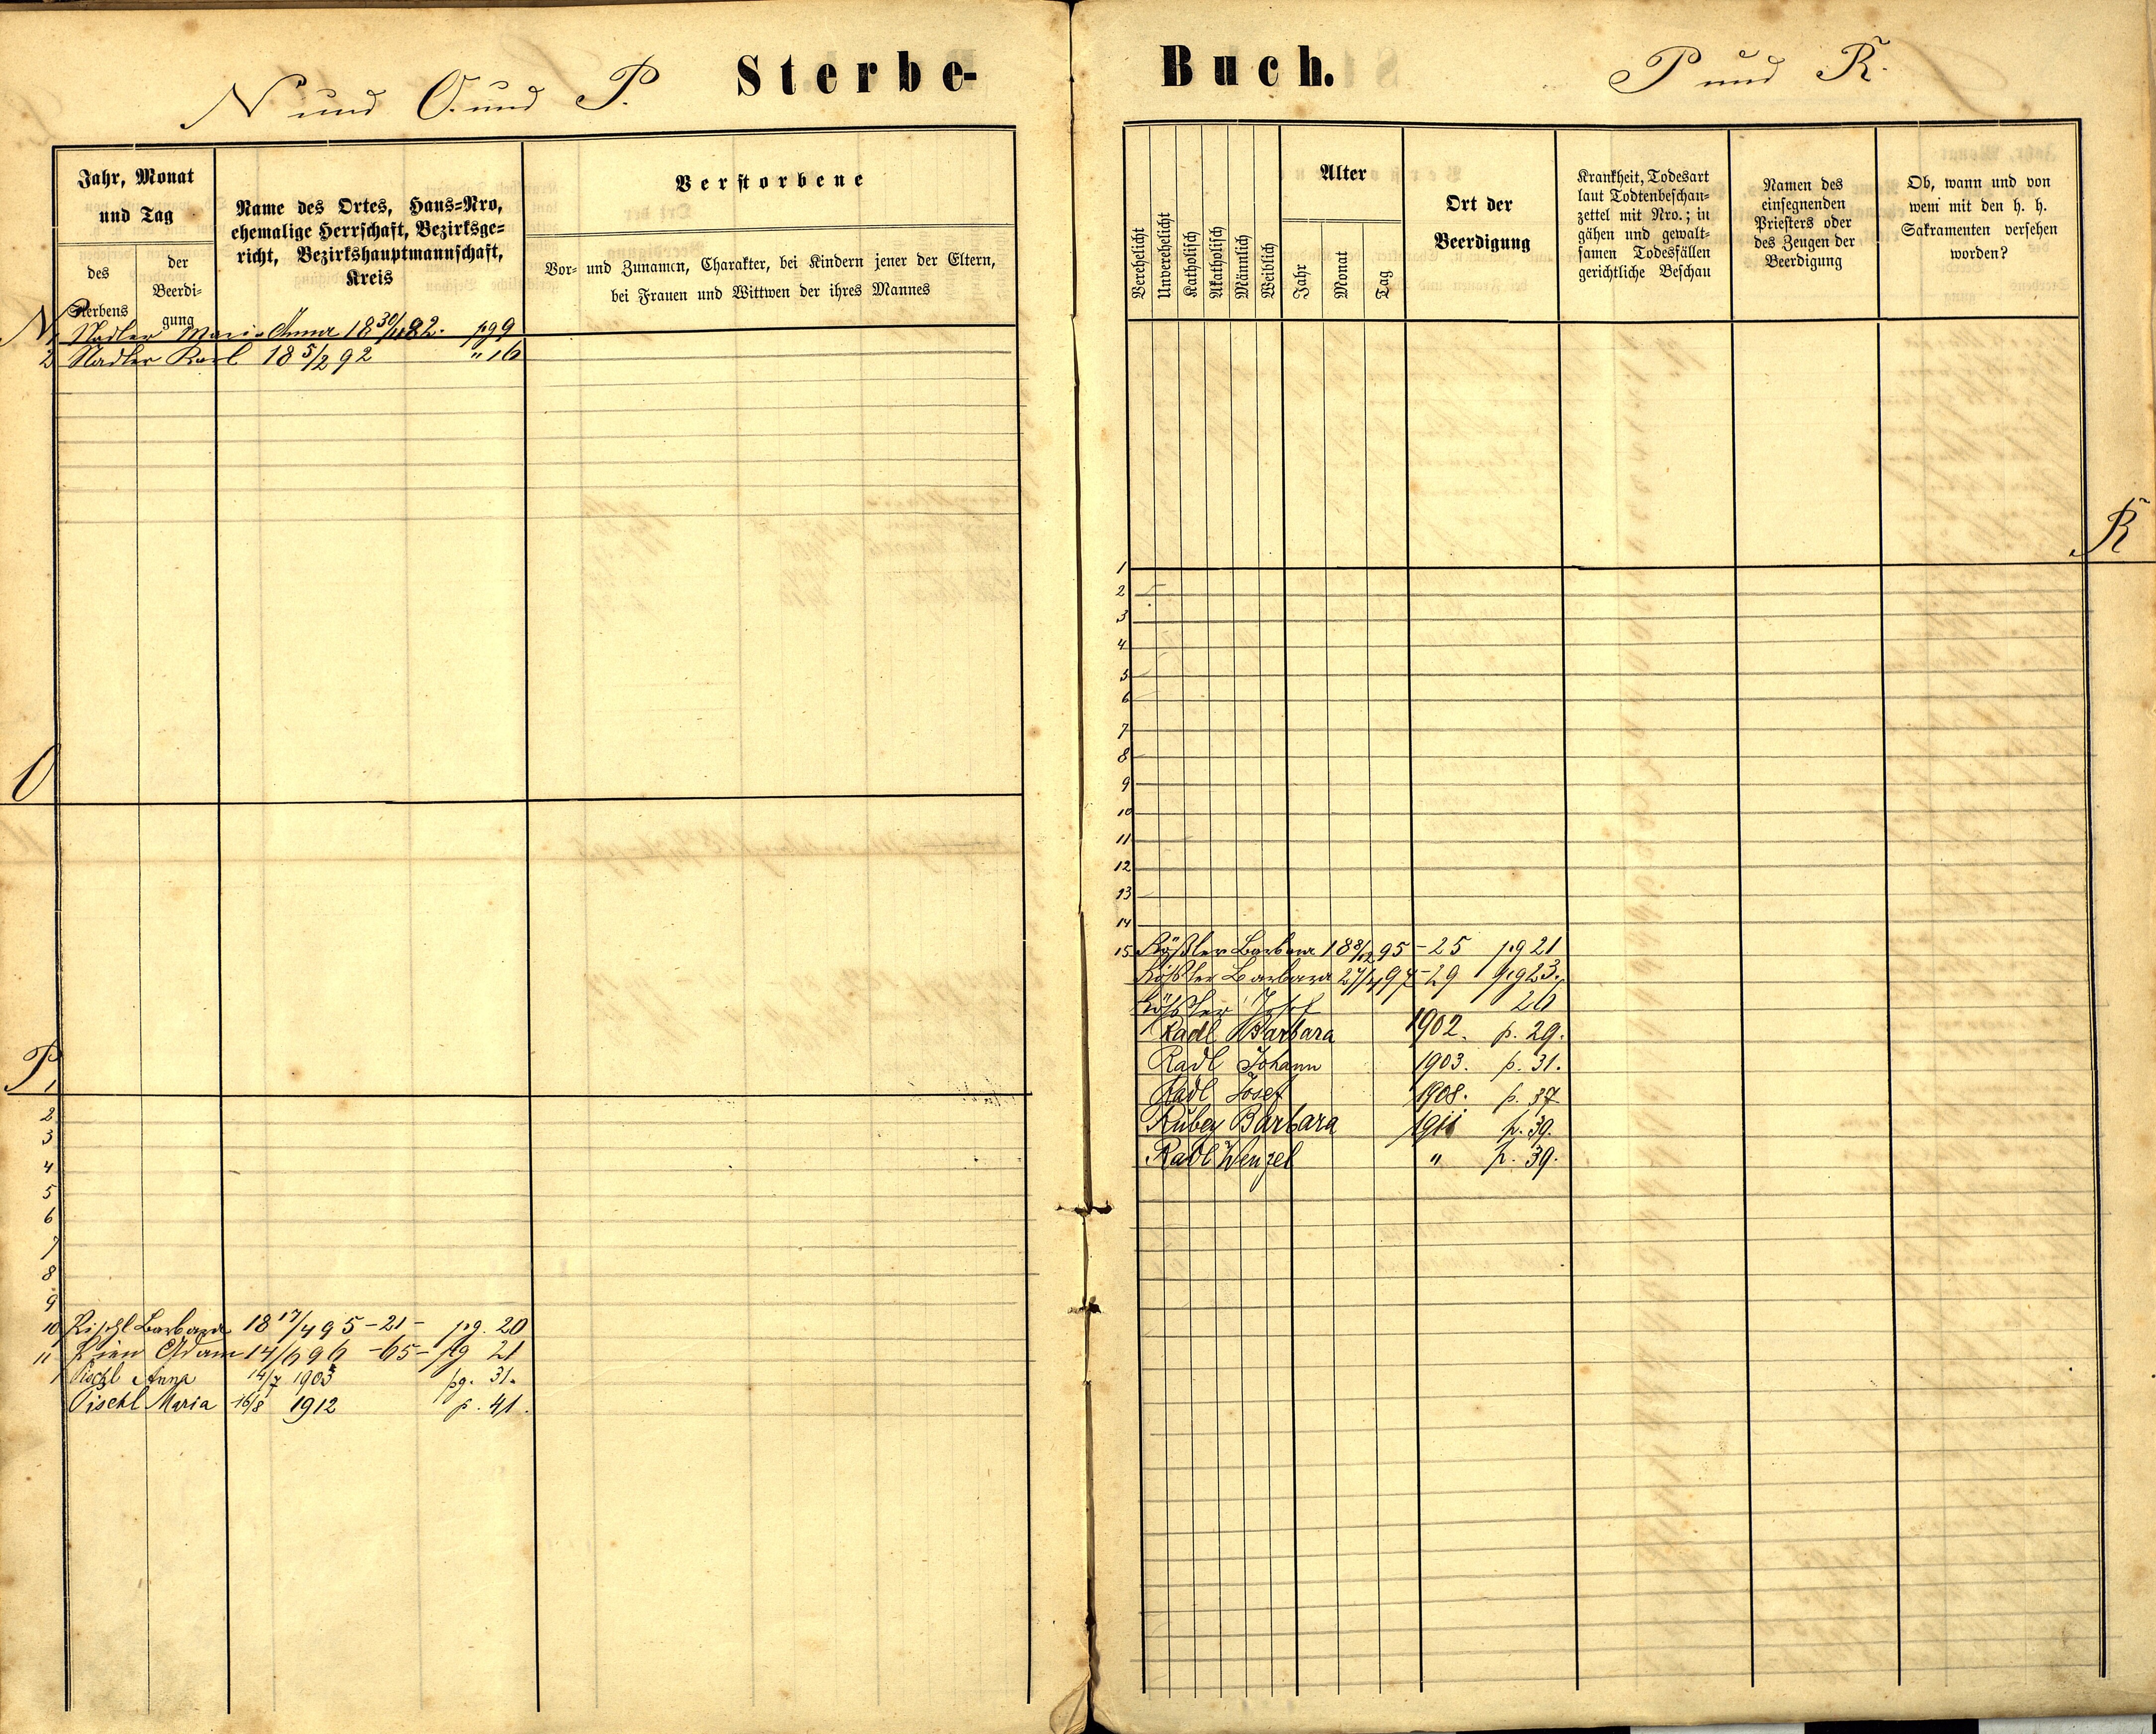 N und O. und P.
Sterbe-
Jahr, Monat
und Tag
des
Sterbens
der
Beerdi-
gung
Name des Ortes, Haus-Nro,
ehemalige Herrschaft, Bezirksge-
richt, Bezirkshauptmannschaft,
Kreis
Verstorbene
Vor- und Zunamen, Charakter, bei Kindern jener der Eltern,
bei Frauen und Wittwen der ihres Mannes
N
1 Nadler Maria Anna 18 30/11 82. pg 9
2 Nadler Karl 18 5/2 92 " 16
O
P
1
2
3
4
5
6
7
8
9
10 Pischl Barbara 18 17/4 95 - 21 - pg. 20
11 Adam 14/6 96 - 65 - pg 21
Pischl Anna 14/7 1903 pg. 31.
Pischl Maria 16/8 1912 p. 41.
Buch.
P und R.
Verehelicht
Unverehelicht
Katholisch
Akatholisch
Männlich
Weiblich
Alter
Jahr
Monat
Tag
Ort der
Beerdigung
Krankheit, Todesart
laut Todtenbeschau-
zettel mit Nro.; in
gähen und gewalt-
samen Todesfällen
gerichtliche Beschau
Namen des
einsegnenden
Priesters oder
des Zeugen der
Beerdigung
Ob, wann und von
wem mit den h. h.
Sakramenten versehen
worden?
R
1
2
3
4
5
6
7
8
9
10
11
12
13
14
15 Rößler Barbara 18 8/12 95 - 25 pg 21
Rößler Barbara 27/4 97 - 29 pg 23.
Rößler Josef 26
Radl Barbara 1902. p. 29.
Radl Johann 1903. p. 31.
Radl Josef 1908. p. 37
Rubey Barbara 1911 p. 39.
Radl Wenzel " p. 39.